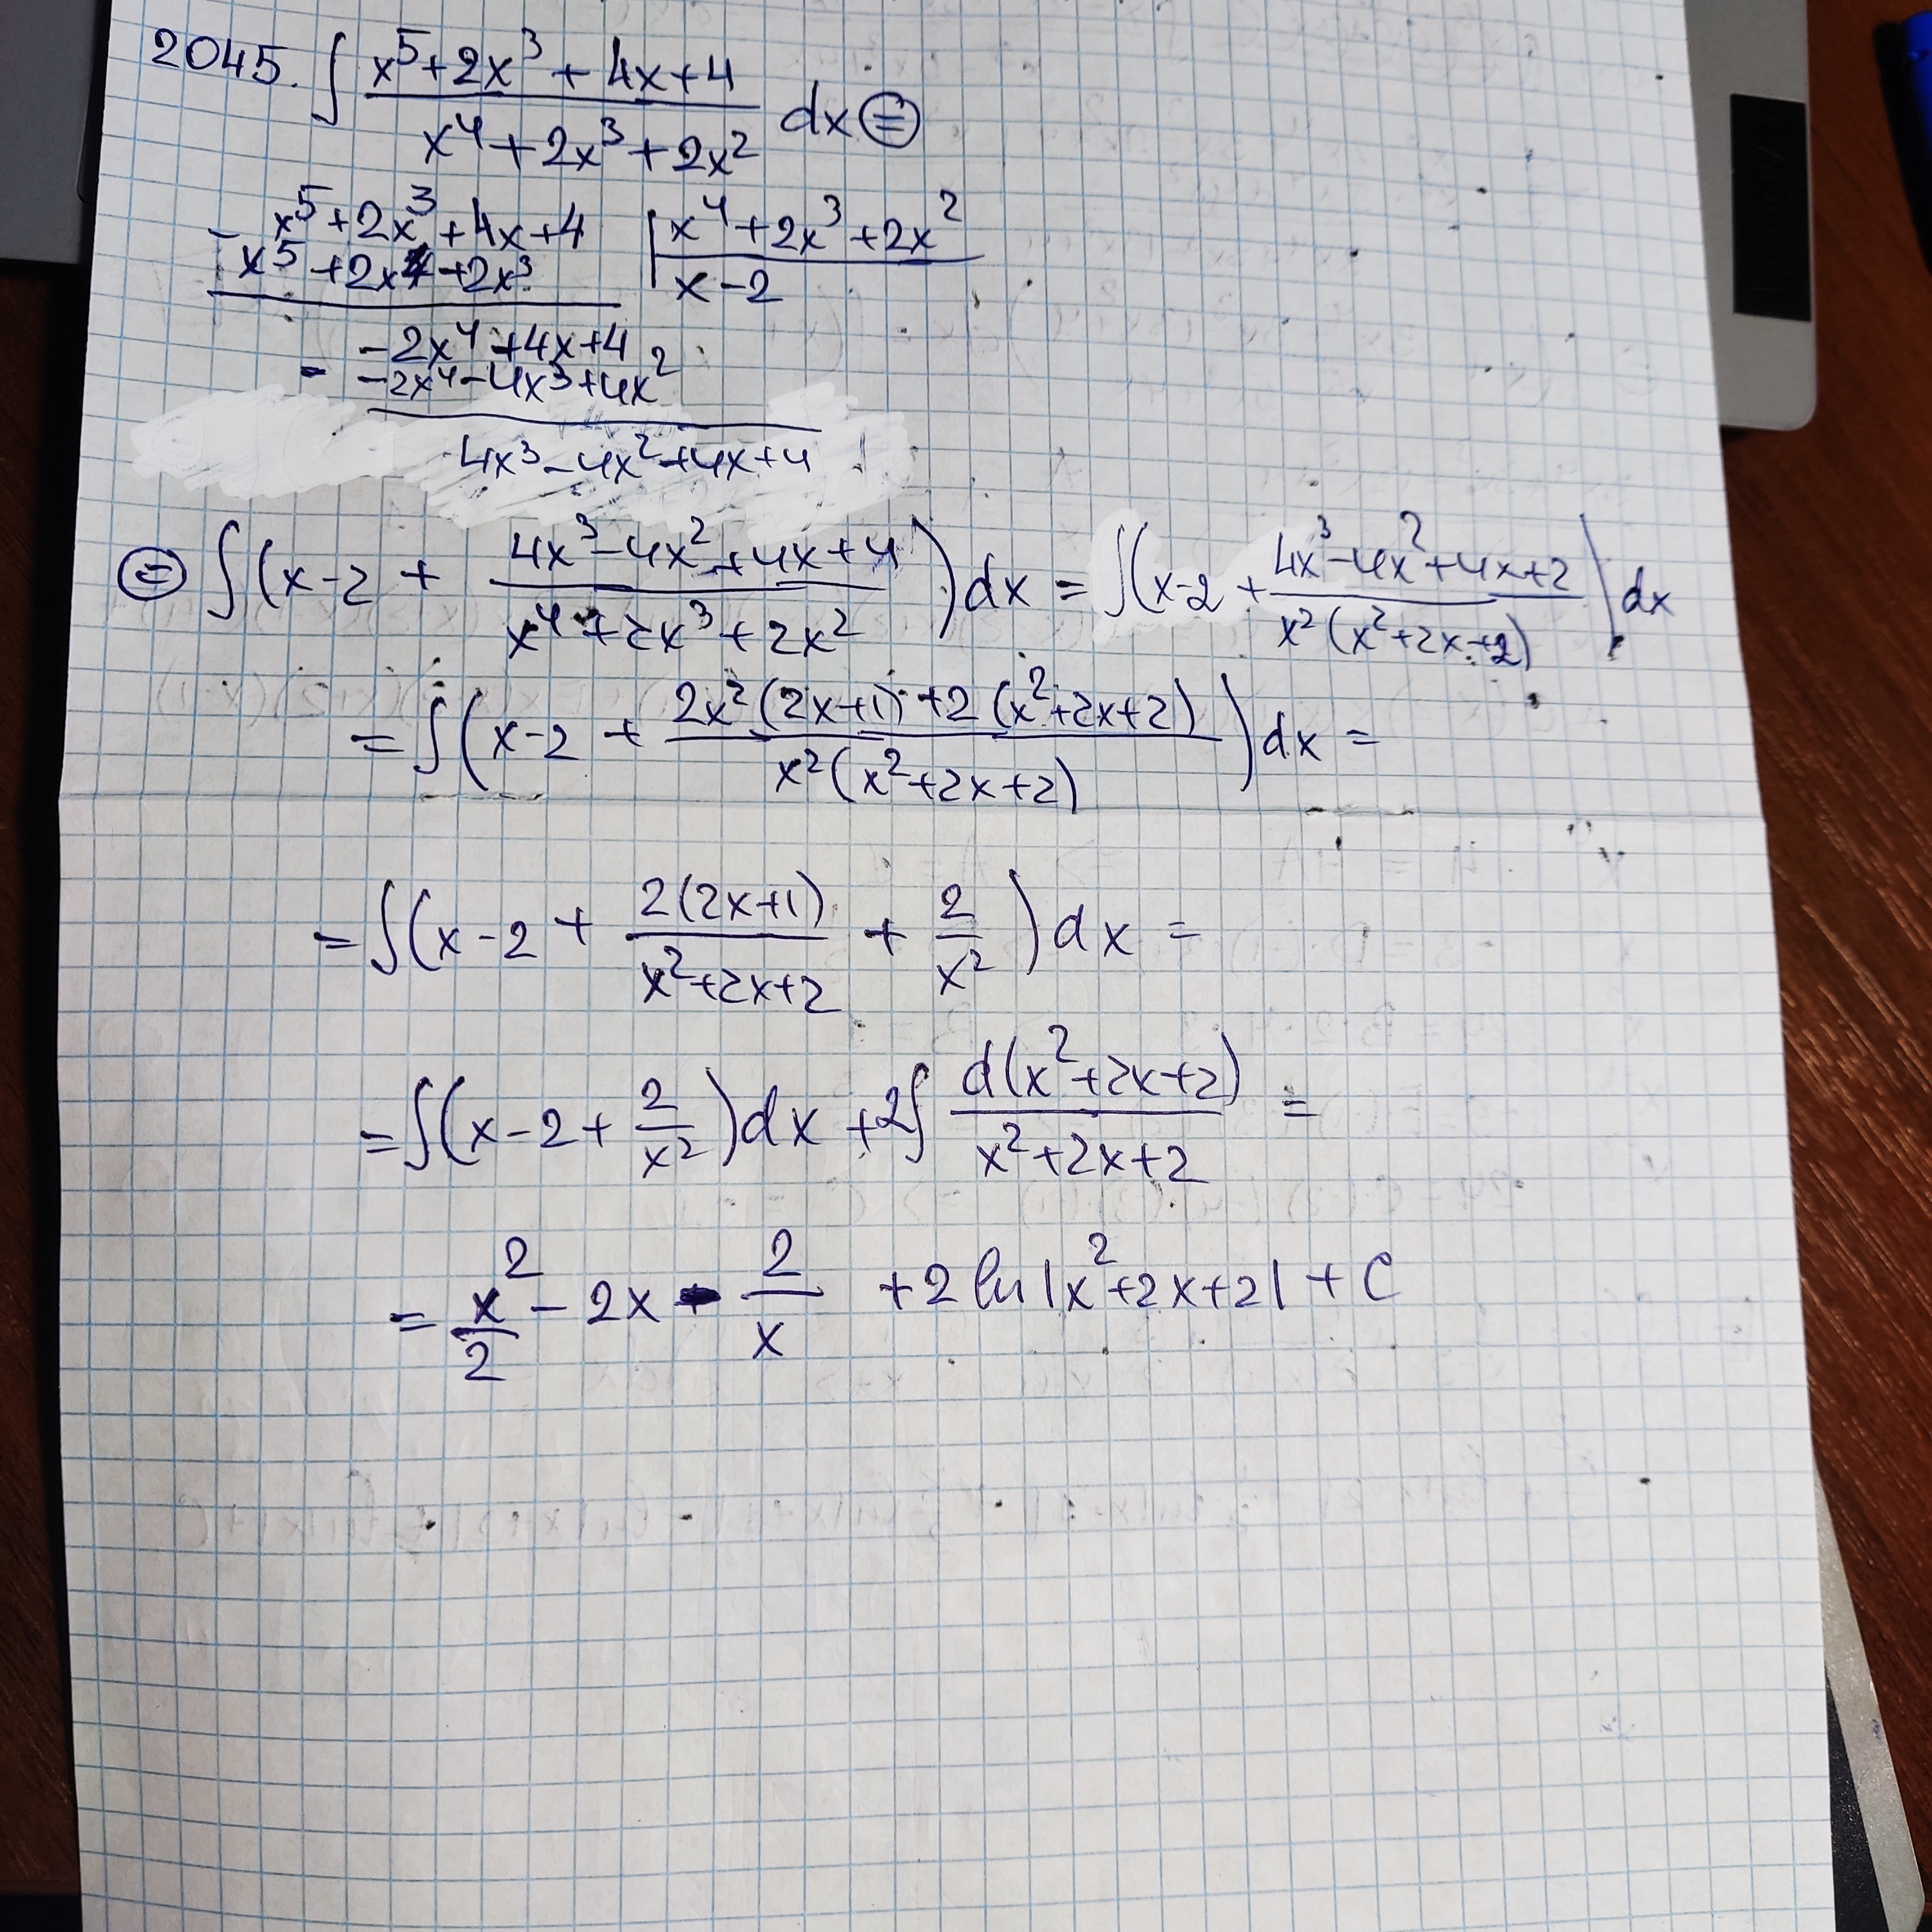 2045. ∫ (x^5+2x^3+4x+4)/(x^4+2x^3+2x^2) dx ⊜
- x^5+2x^3+4x+4 | x^4+2x^3+2x^2
x^5+2x^4+2x^3 | x-2
-2x^4+4x+4
- -2x^4-4x^3+4x^2
4x^3-4x^2+4x+4
⊜ ∫(x-2 + (4x^3-4x^2+4x+4)/(x^4+2x^3+2x^2))dx = ∫(x-2 + (4x^3-4x^2+4x+2)/(x^2(x^2+2x+2)))dx
= ∫(x-2 + (2x^2(2x+1)+2(x^2+2x+2))/(x^2(x^2+2x+2)))dx =
= ∫(x-2 + (2(2x+1))/(x^2+2x+2) + 2/x^2)dx =
= ∫(x-2+2/x^2)dx + 2∫ d(x^2+2x+2)/(x^2+2x+2) =
= x^2/2 - 2x - 2/x + 2 ln|x^2+2x+2| + C